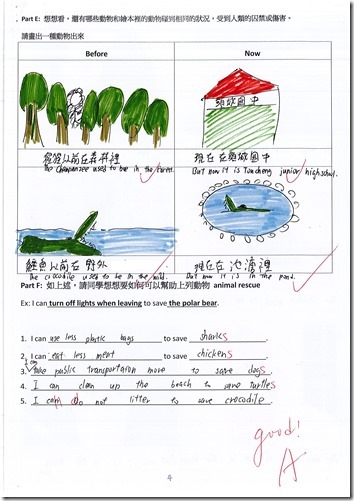 Part E: 想想看,還有哪些動物和繪本裡的動物碰到相同的狀況,受到人類的囚禁或傷害。
請畫出一種動物出來
Before Now
頭城國中
猩猩以前在森林裡 現在在頭城國中
The Chimpanzee used to be in the forest. But now it is Toucheng junior high school.
鱷魚以前在野外 現在在池塘裡
The crocodile used to be in the wild. But now it is in the pond.
Part F: 如上述,請同學想想要如何可以幫助上列動物 animal rescue
Ex: I can turn off lights when leaving to save the polar bear.
1. I can use less plastic bags to save sharks.
2. I can eat less meat to save chickens.
3. I can take public transportation more to save dogs.
4. I can clean up the beach to save turtles
5. I can do not litter to save crocodile.
good!
A
4